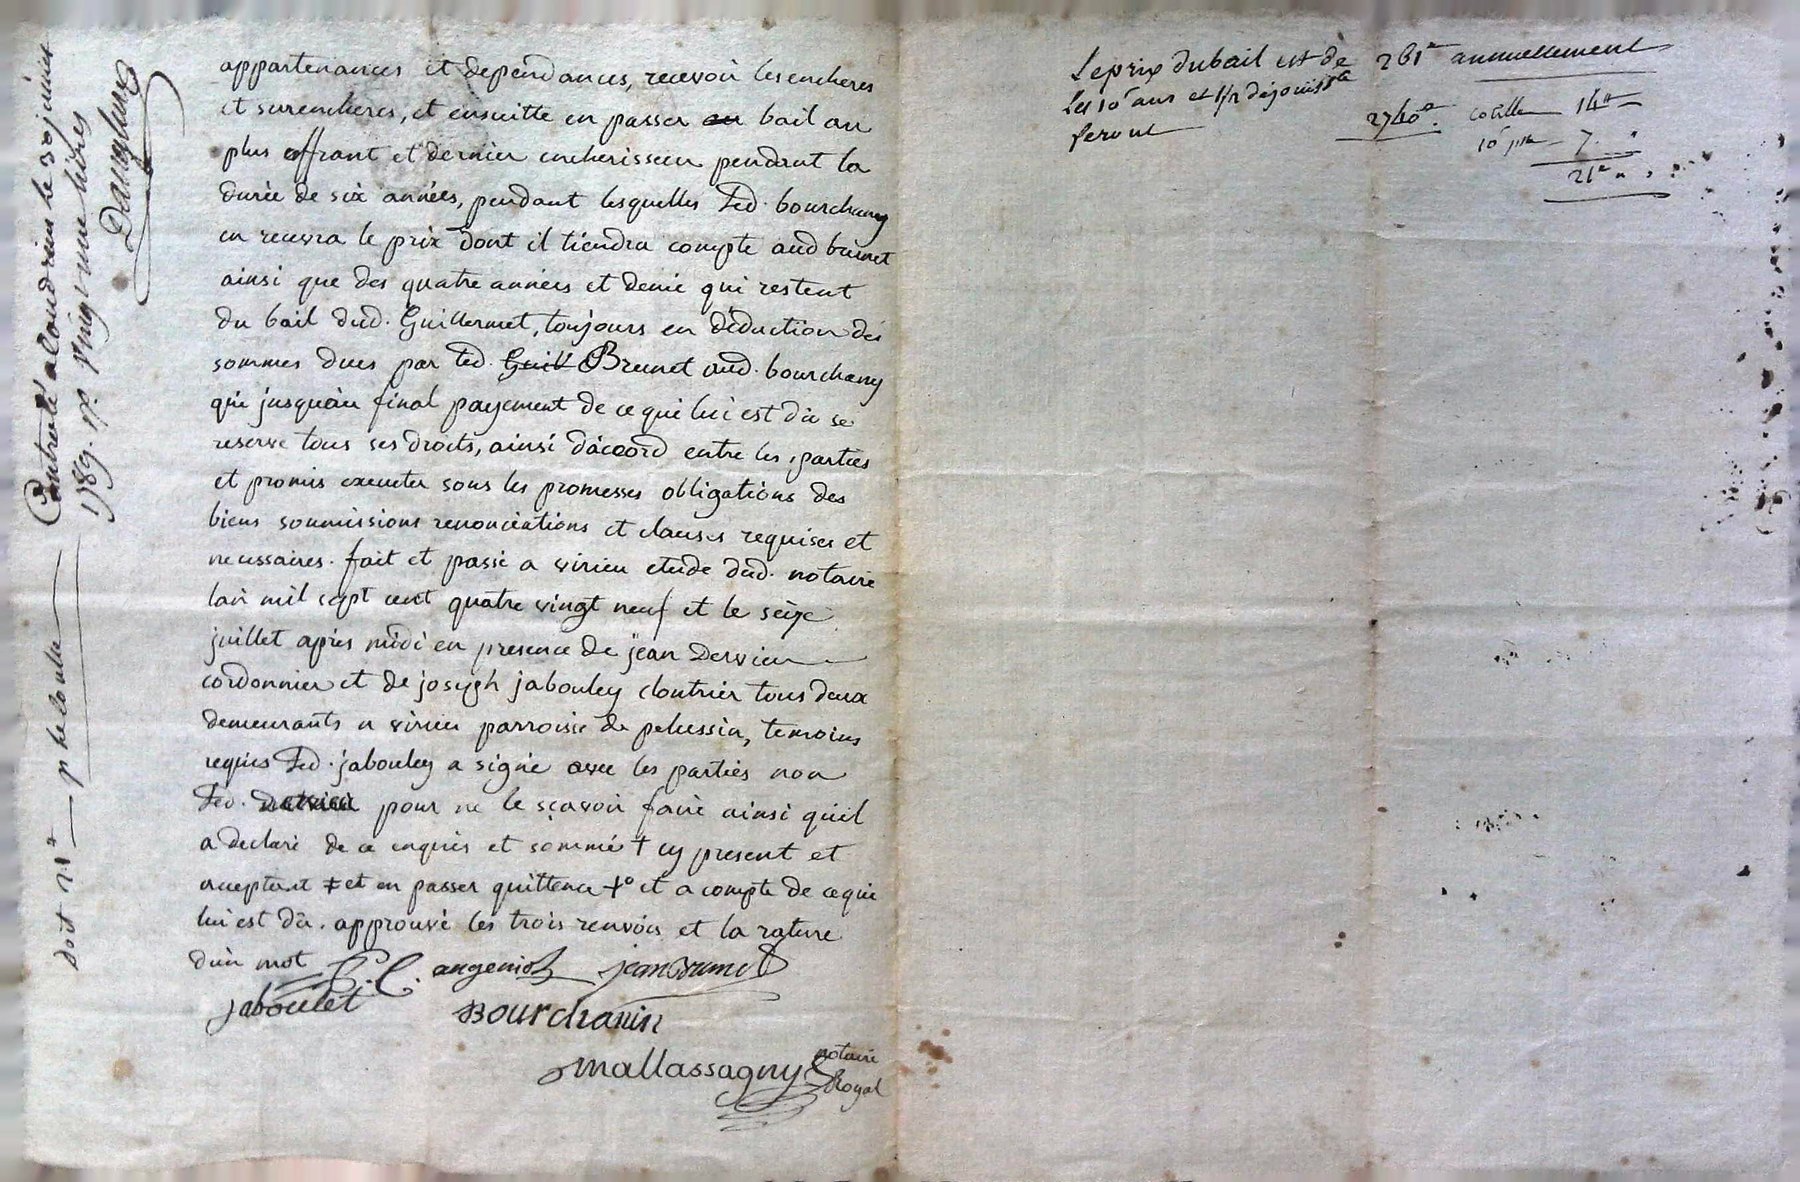 appartenances et dependances, recevoir les encheres
et surencheres, et ensuitte en passer au bail au
plus offrant et dernier encherisseur pendant la
durée de six années, pendant lesquelles led. bourchany
en recevra le prix dont il tiendra compte aud brunet
ainsi que des quatre années et demie qui restent
du bail dud. Guillermet, toujours en déduction des
sommes dues par led. Guill Brunet aud. bourchany
qui jusquau final payement de ce qui lui est dû se
reserve tous ses droits, ainsi d'accord entre les parties
et promis executer sous les promesses obligations des
biens soumissions renonciations et clauses requises et
necessaires. fait et passé a virieu etude dud. notaire
lan mil sept cent quatre vingt neuf et le seize
juillet après midi en presence de jean Dervieu
cordonnier et de joseph jabouley cloutrier tous deux
demeurants a virieu parroisse de pelussin, temoins
requis led. jabouley a signé avec les parties non
led. pour ne le sçavoir faire ainsi quil
a declaré de ce enquis et sommé + cy present et
acceptant ‡ et en passer quittence +° et a compte de ce qui
lui est dû. approuvé les trois renvois et la rature
d'un mot
angeniol jean Brunet
jaboulet
Bourchanin
Mallassagny notaire
Royal
Controlé a Condrieu le 30 juillet
1789. rp. vingt une livres
Dauphin
Doit 21#
Le prix du bail est de 261# annuellement
Les 10 ans et 1/2 de jouiss.ce
feront 2740#. 14#
7.
21#